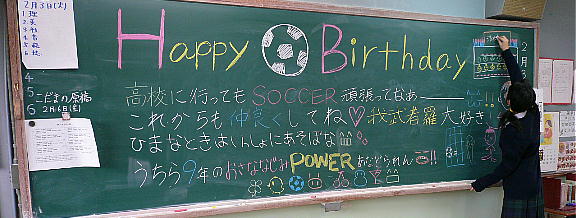 2月3日(火)
1 理
2 英
3 社
4 音
5
6
4
5
6
こだまの原稿
2月6日(金)
Happy Birthday
高校に行っても SOCCER 頑張ってなぁ!!
これからも仲良くしてね♡我武者羅大好き
ひまなときはいっしょにあそばな
うちら9年のおさななじみPOWERあなどられん!!
2月3日